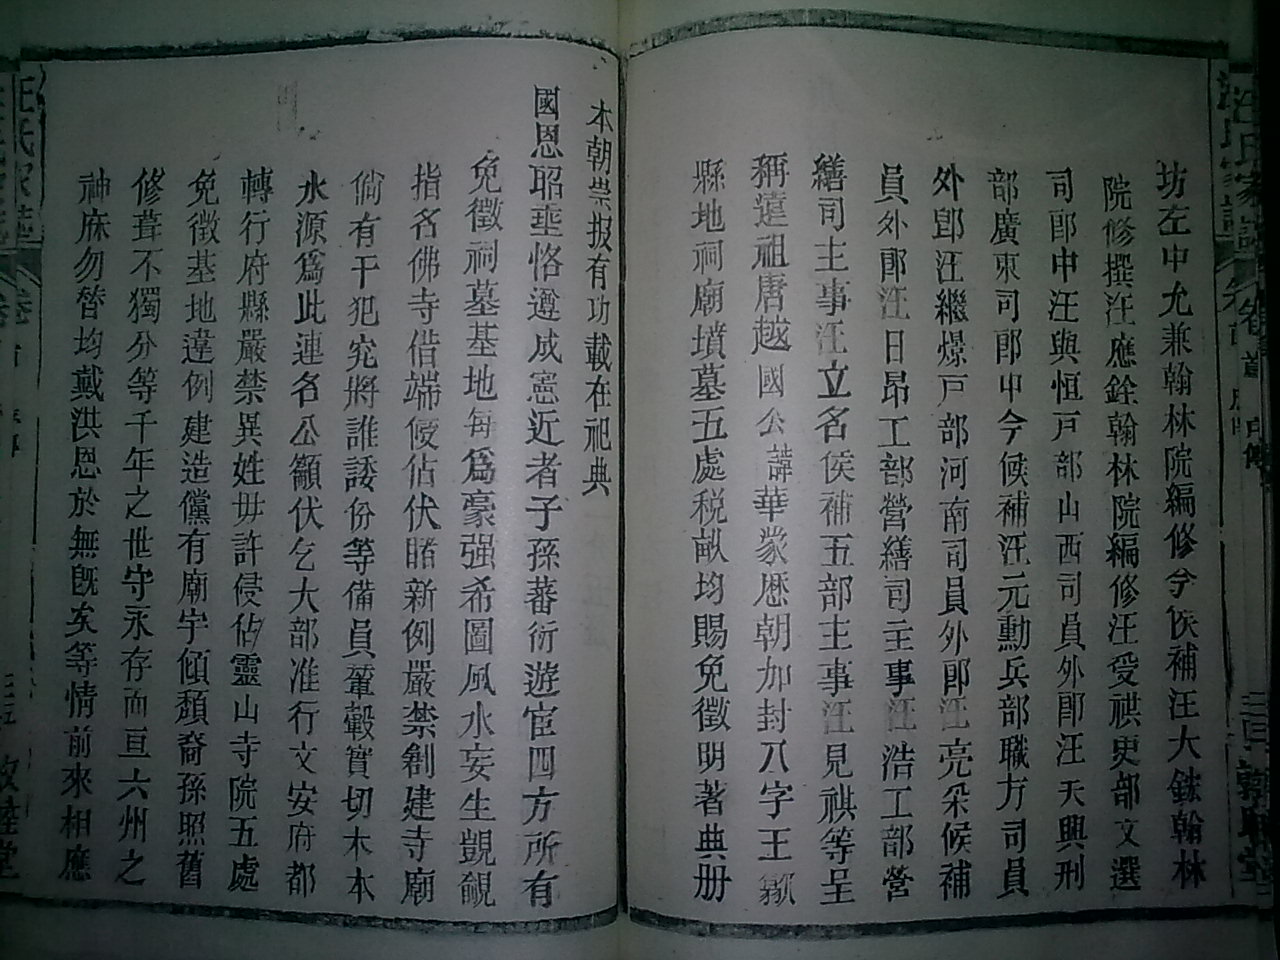 坊左中允兼翰林院編修今候補汪大鋐翰林
院修撰汪應銓翰林院編修汪受祺吏部文選
司郎中汪與恒戸部山西司員外郎汪天興刑
部廣東司郎中今候補汪元勳兵部職方司員
外郎汪繼燝戸部河南司員外郎汪亮采候補
員外郎汪日昂工部營繕司主事汪浩工部營
繕司主事汪立名侯補五部主事汪見祺等呈
稱遠祖唐越國公諱華蒙歷朝加封八字王號
縣地祠廟墳墓五處税畝均賜免徵明著典册
本朝崇报有功載在祀典
國恩昭垂恪遵成憲近者子孫蕃衍遊宦四方所有
免徵祠墓基地每爲豪强希圖風水妄生覬覦
指名佛寺借端侵佔伏睹新例嚴禁創建寺廟
倘有干犯究將誰諉份等備員輦轂實切木本
水源爲此連名公籲伏乞大部准行文安府都
轉行府縣嚴禁異姓毋許侵佔靈山寺院五處
免徵基地違例建造儻有廟宇傾頽裔孫照舊
修葺不獨分等千年之世守永存而亘六州之
神庥勿替均戴洪恩於無旣矣等情前來相應
汪氏家譜